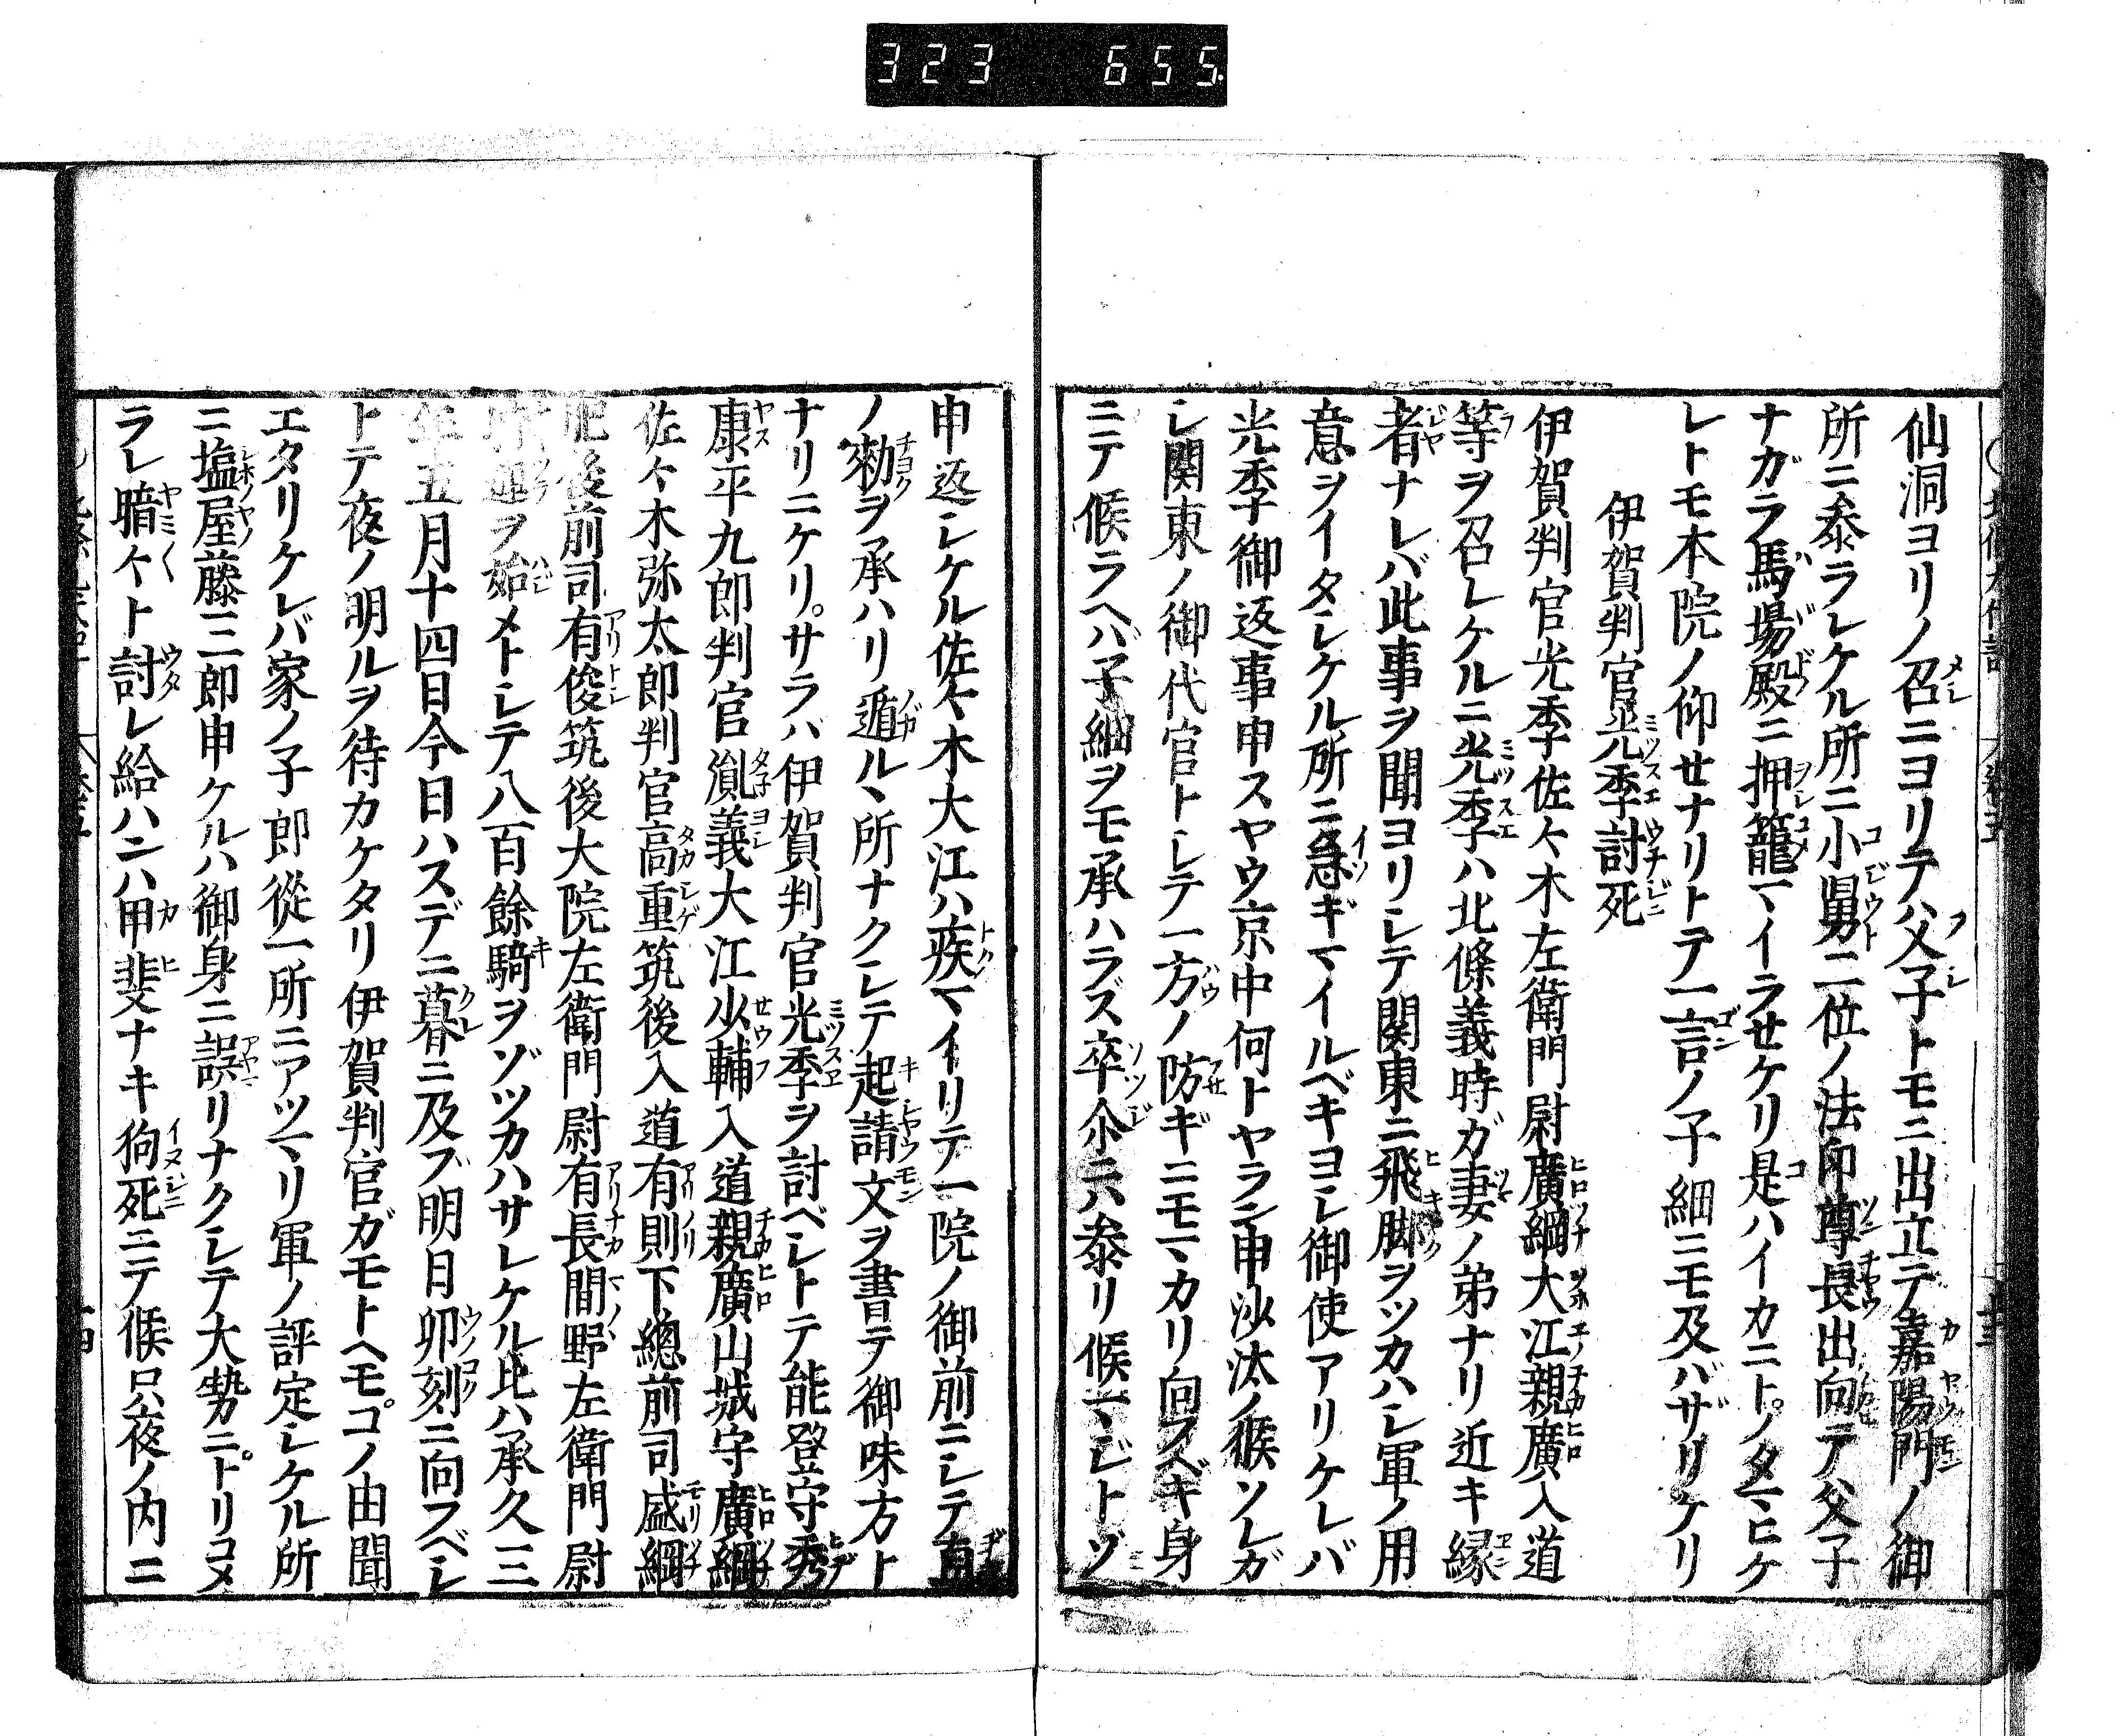 323 655.
仙洞ヨリノ召ニヨリテ父子トモニ出立テ嘉陽門ノ御
所ニ参ラレケル所ニ小舅二位ノ法印尊長出向テ父子
ナガラ馬場殿ニ押籠マイラセケリ是ハイカニトノタマヒケ
レトモ本院ノ仰せナリトテ一言ノ子細ニモ及バザリケリ
伊賀判官光季討死
伊賀判官光季佐々木左衛門尉廣綱大江親廣入道
等ヲ召レケルニ光季ハ北條義時ガ妻ノ弟ナリ近キ縁
者ナレバ此事ヲ聞ヨリシテ関東ニ飛脚ヲツカハシ軍ノ用
意ヲイタシケル所ニ急ギマイルベキヨシ御使アリケレバ
光季御返事申スヤウ京中何トヤラン申沙汰ノ候ソレガ
シ関東ノ御代官トシテ一方ノ防ギニモマカリ向スベギ身
ニテ候ラヘバ子細ヲモ承ハラズ卒尒ニハ参リ候マジトゾ
申返シケル佐々木大江ハ疾マイリテ一院ノ御前ニシテ直
ノ勅ヲ承ハリ遁ルヽ所ナクシテ起請文ヲ書テ御味方ト
ナリニケリサラバ伊賀判官光季ヲ討ベシトテ能登守秀
康平九郎判官胤義大江少輔入道親廣山城守廣綱
佐々木弥太郎判官高重筑後入道有則下總前司盛綱
肥後前司有俊筑後大院左衛門尉有長間野左衛門尉
時連ヲ始メトシテ八百餘騎ヲゾツカハサレケル比ハ承久三
年五月十四日今日ハスデニ暮ニ及ブ明日卯刻ニ向フベシ
トテ夜ノ明ルヲ待カケタリ伊賀判官ガモトヘモコノ由聞
エタリケレバ家ノ子郎從一所ニアツマリ軍ノ評定シケル所
ニ塩屋藤三郎申ケルハ御身ニ誤リナクシテ大勢ニトリコメ
ラレ暗々ト討レ給ハンハ甲斐ナキ狗死ニテ候只夜ノ内ニ